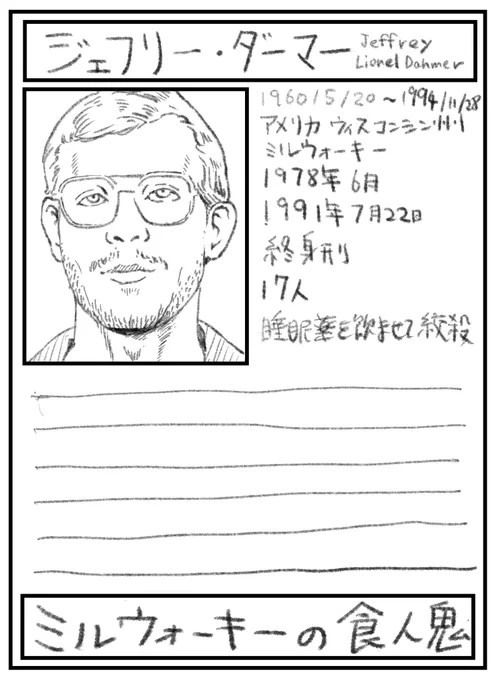 ジェフリー・ダーマー
Jeffrey
Lionel Dahmer
1960/5/20〜1994/11/28
アメリカ ウィスコンシン州
ミルウォーキー
1978年6月
1991年7月22日
終身刑
17人
睡眠薬を飲ませて絞殺
ミルウォーキーの食人鬼